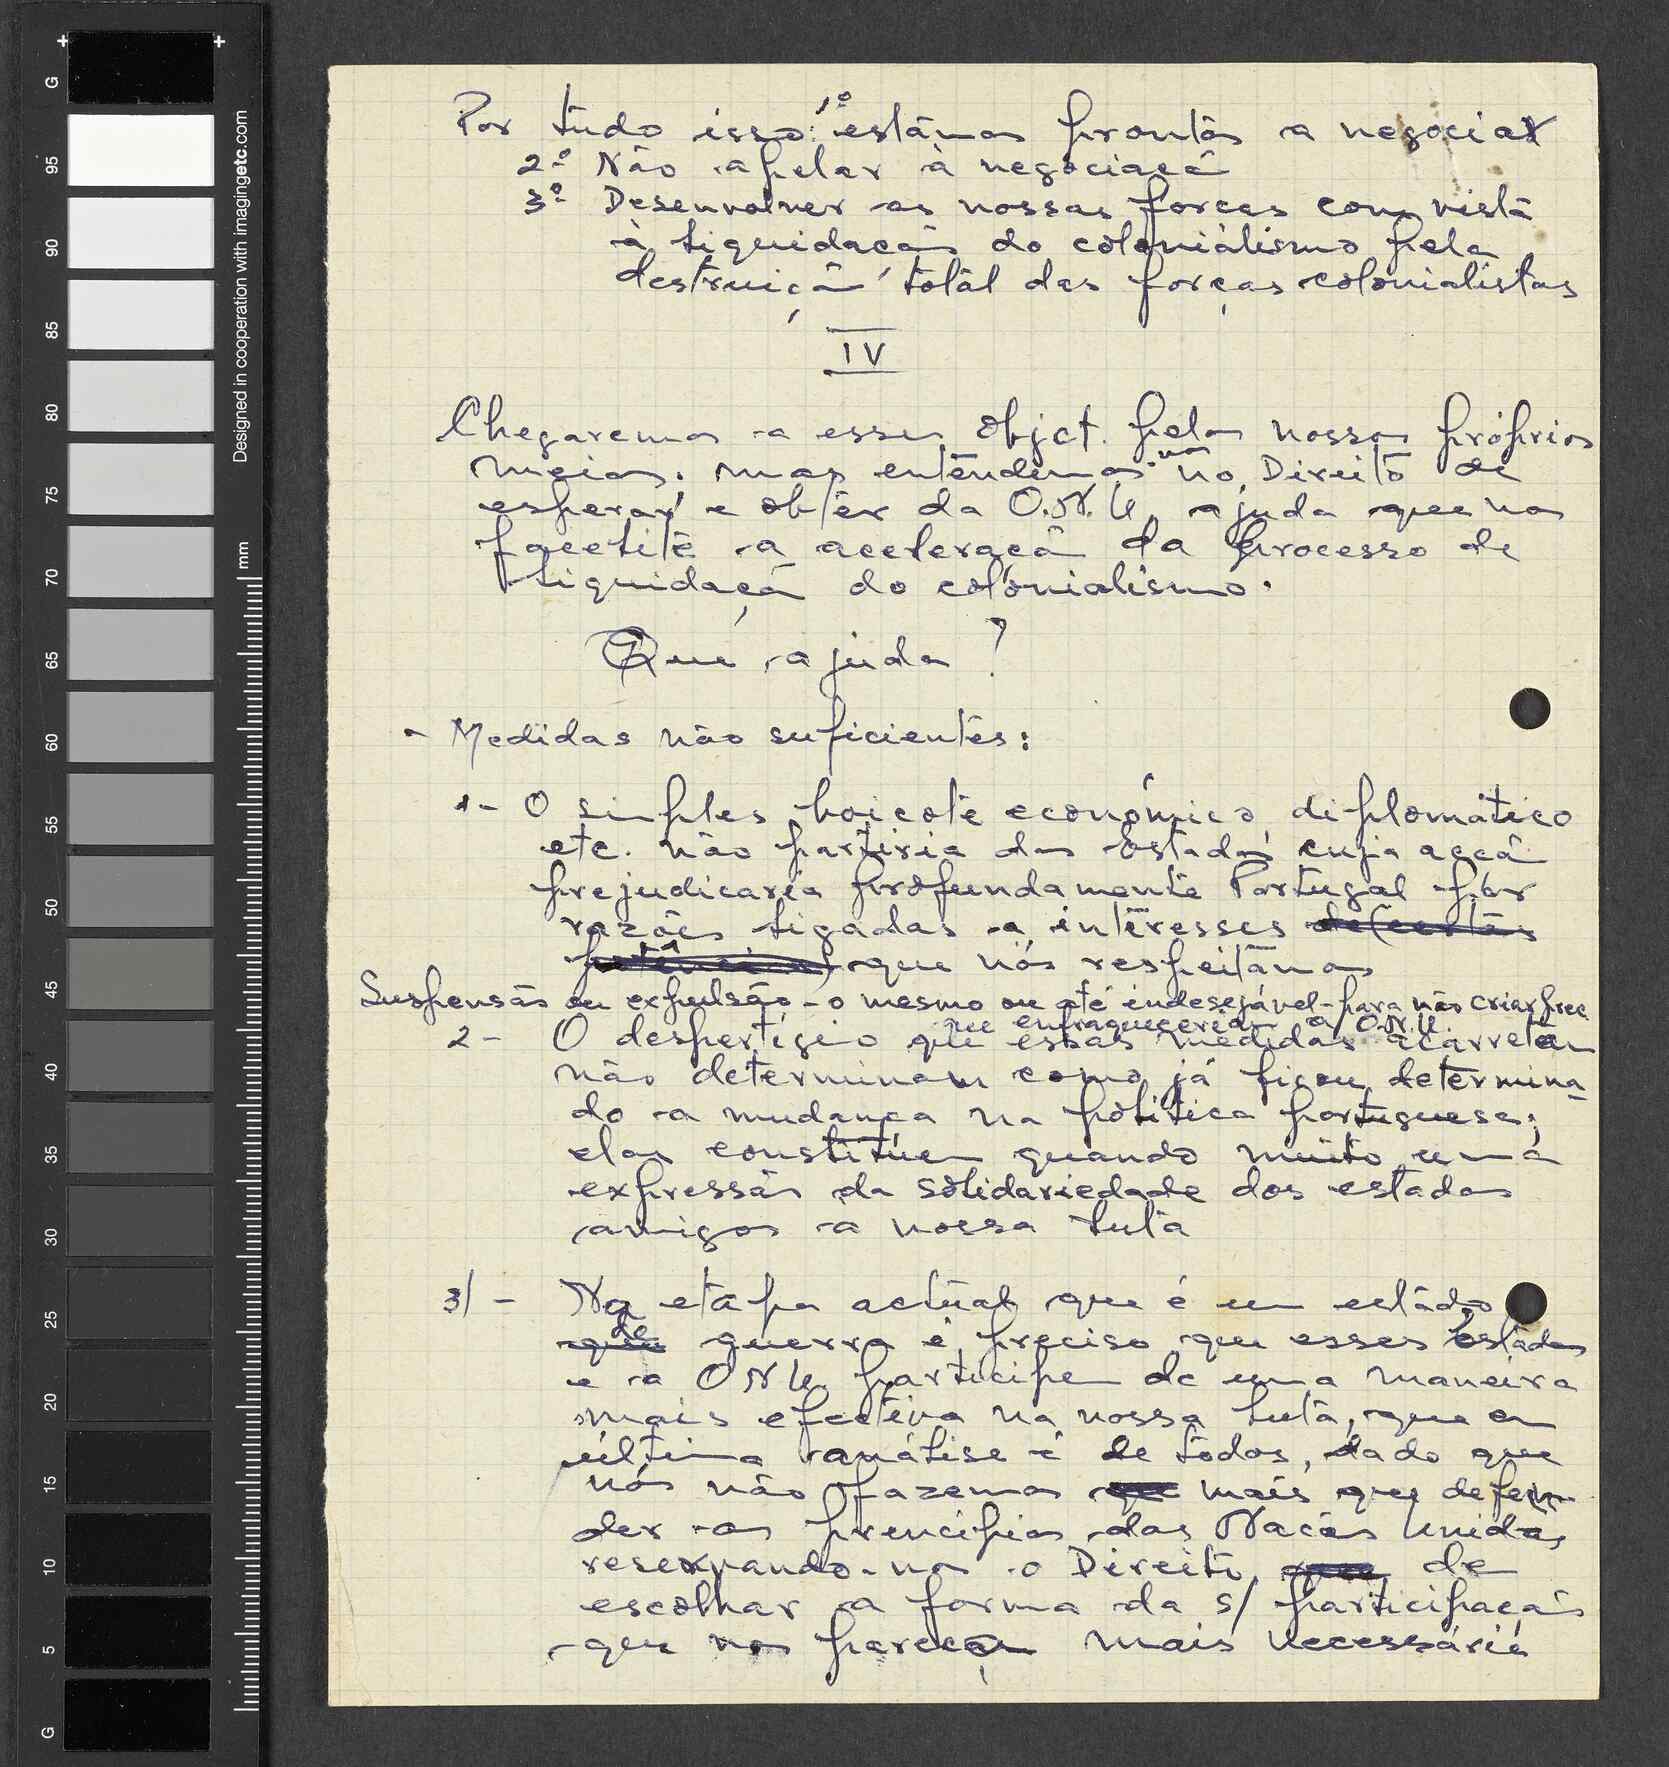 Por tudo isso: 1º estamos prontos a negociar
2º Não apelar à negociação
3º Desenvolver as nossas forças com vista
à liquidação do colonialismo pela
destruição total das forças colonialistas
IV
Chegaremos a esses object. pelos nossos próprios
meios. mas entendemos-nos no Direito de
esperar e obter da O.N.U. ajuda que nos
facilite a aceleração da processo de
liquidação do colonialismo.
Que ajuda?
- Medidas não suficientes:
1- O simples boicote económico, diplomático
etc. não partiria dos Estados cuja acção
prejudicaria profundamente Portugal por
razões ligadas a interesses
que nós respeitamos
Suspensão ou expulsão - o mesmo ou até indesejável - para não criar prec
que enfraqueceria a O.N.U.
2- O despertigio que essas medidas acarretam
não determinam como já ficou determina-
do a mudança na politica portuguesa;
elas constituem quando muito uma
expressão da solidariedade dos estados
amigos a nossa luta
3/- Na etapa actual que é um estado
de guerra é preciso que esses Estados
e a ONU participem de uma maneira
mais efectiva na nossa luta, que em
última análise é de todos, dado que
nós não fazemos mais que defen-
der os principios das Nações Unidas,
reservando-nos o Direito de
escolher a forma da s/ participação
que nos pareça mais necessária
G
95
90
85
80
75
70
65
60
55
50
45
40
35
30
25
20
15
10
5
G
mm
Designed in cooperation with imagingetc.com